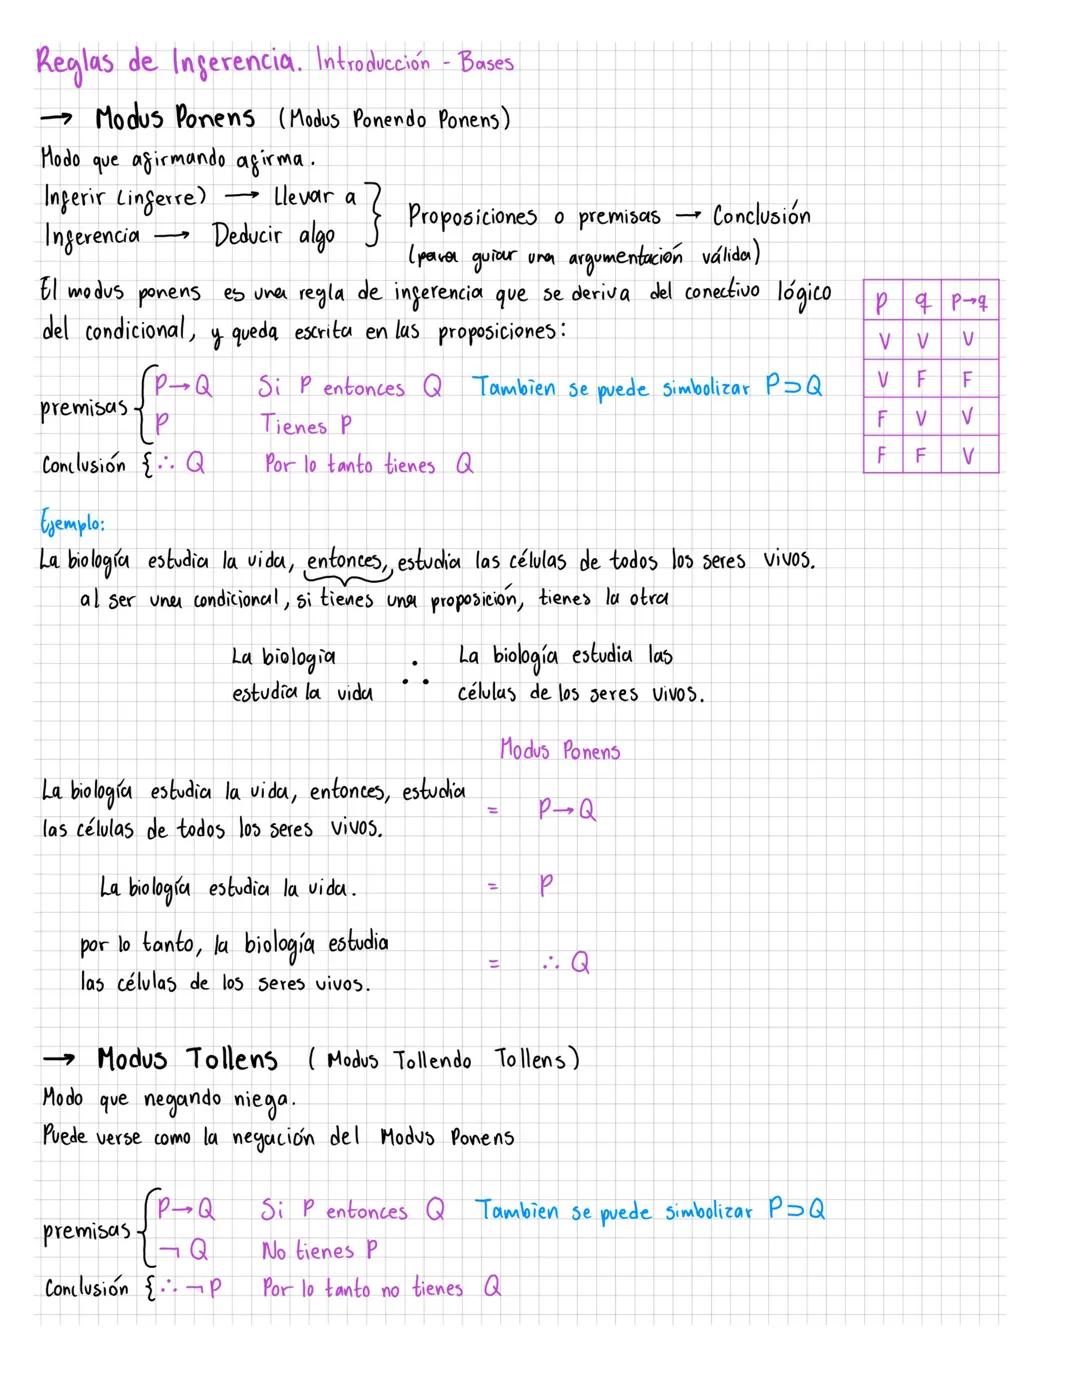 Reglas de Inferencia. Introducción - Bases
→ Modus Ponens (Modus Ponendo Ponens)
Modo que afirmando afirma.
Inferir (inferre) → Llevar a
Inferencia → Deducir algo
Proposiciones o premisas → Conclusión
(para guiar una argumentación válida)
El modus ponens es una regla de inferencia que se deriva del conectivo lógico
del condicional, y queda escrita en las proposiciones:
p q p→q
V V V
V F F
F V V
F F V
premisas { P→Q Si P entonces Q Tambien se puede simbolizar P⊃Q
P Tienes P
Conclusión {∴ Q Por lo tanto tienes Q
Ejemplo:
La biología estudia la vida, entonces, estudia las células de todos los seres vivos.
al ser una condicional, si tienes una proposición, tienes la otra
La biologia
estudia la vida
∴
La biología estudia las
células de los seres vivos.
Modus Ponens
La biología estudia la vida, entonces, estudia
las células de todos los seres vivos.
= P→Q
La biología estudia la vida. = P
por lo tanto, la biología estudia
las células de los seres vivos.
= ∴ Q
→ Modus Tollens (Modus Tollendo Tollens)
Modo que negando niega.
Puede verse como la negación del Modus Ponens
premisas { P→Q Si P entonces Q Tambien se puede simbolizar P⊃Q
¬Q No tienes P
Conclusión {∴ ¬P Por lo tanto no tienes Q